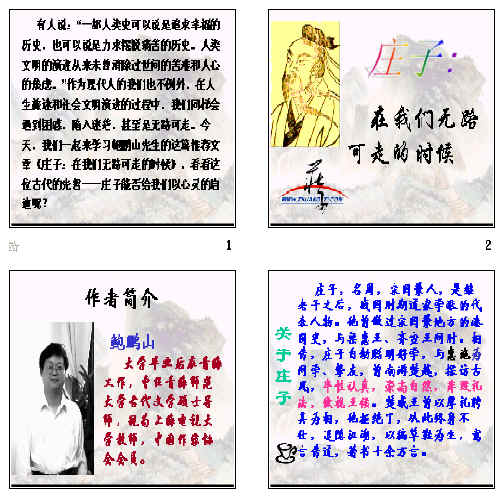 有人说:“一部人类史可以说是追求幸福的
历史，也可以说是力求摆脱痛苦的历史。人类
文明的演进从来未曾消除过世间的苦难和人心
的焦虑。”作为现代人的我们也不例外，在人
生旅途和社会文明演进的过程中，我们同样会
遇到困惑，陷入迷茫，甚至是无路可走。今
天，我们一起来学习鲍鹏山先生的这篇推荐文
章《庄子：在我们无路可走的时候》，看看这
位古代的先哲——庄子能否给我们以心灵的启
迪呢？
1
庄子：
在我们无路
可走的时候
2
作者简介
鲍鹏山
大学毕业后在青海
工作，曾任青海师范
大学古代文学硕士导
师，现为上海电视大
学教师，中国作家协
会会员。
关于庄子
庄子，名周，宋国蒙人，是继
老子之后，战国时期道家学派的代
表人物。他曾做过宋国蒙地方的漆
园吏，与梁惠王、齐宣王同时。相
传，庄子自幼聪明好学，与惠施为
同学、挚友，曾南游楚越，探访古
风。率性认真，崇尚自然，弃蔑礼
法，傲视王侯。楚威王曾以厚礼聘
其为相，他拒绝了，从此终身不
仕，退隐江湖，以编草鞋为生，寓
言晋道，著书十余万言。